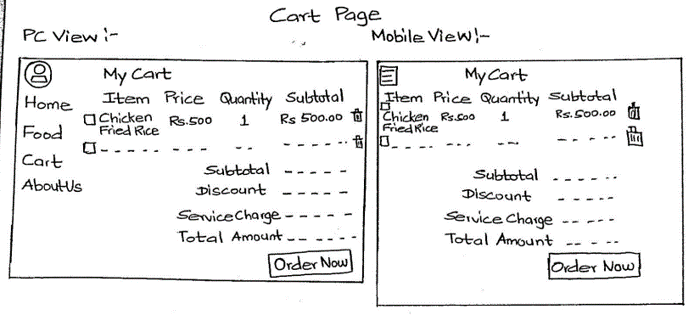 Cart Page
PC View :-
My Cart
Home
Food
Cart
About Us
Item Price Quantity Subtotal
Chicken Fried Rice Rs.500 1 Rs 500.00
Subtotal
Discount
Service Charge
Total Amount
Order Now
Mobile View :-
My Cart
Item Price Quantity Subtotal
Chicken Fried Rice Rs.500 1 Rs.500.00
Subtotal
Discount
Service Charge
Total Amount
Order Now